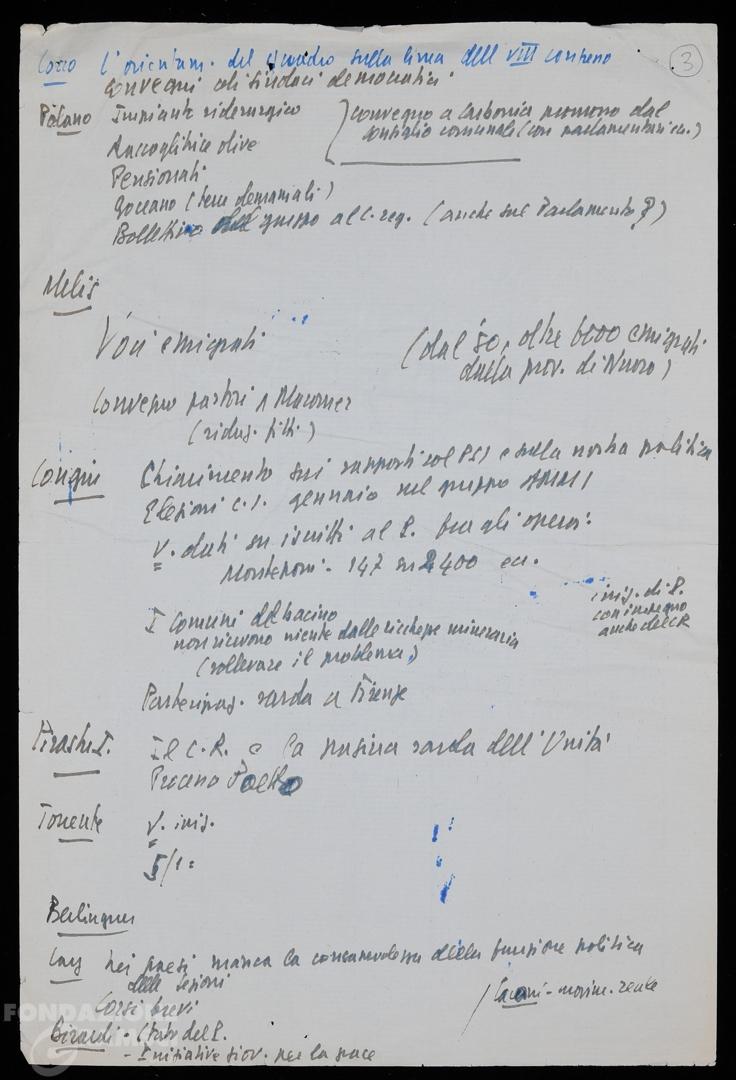 3
Cocco L'orientam. del quadro sulla linea dell'VIII congresso
Convegni di sindaci democratici
Polano Impianto siderurgico
Raccoglitrice olive
Pensionati
Goceano (terre demaniali)
Bollettino del gruppo al C. reg. (anche sul Parlamento?)
convegno a Carbonia promosso dal
consiglio comunale (con parlamentari ecc.)
Melis
Voci emigrati
(dal '50, oltre 6000 emigrati
dalla prov. di Nuoro)
Convegno pastori a Macomer
(riduz. fitti)
Congiu Chiarimento sui rapporti col PSI e sulla nostra politica
Elezioni c.i. gennaio nel gruppo AMMI
V. dati su iscritti al P. tra gli operai:
Monteponi: 147 su 2400 ecc.
I Comuni del bacino
non ricevono niente dalle ricchezze minerarie
(sollevare il problema)
iniz. di P.
con impegno
anche del CR
Partecipaz. sarda a Firenze
Pirastu I. Il C.R. e la pagina sarda dell'Unità
Processo Poetto
Torrente V. iniz.
Berlinguer
Lay Nei paesi manca la consapevolezza della funzione politica
delle sezioni
Corsi brevi
Laconi - movim. reale
Birardi - Stato del P.
- Iniziative giov. per la pace
FONDAZIONE
GRAMSCI